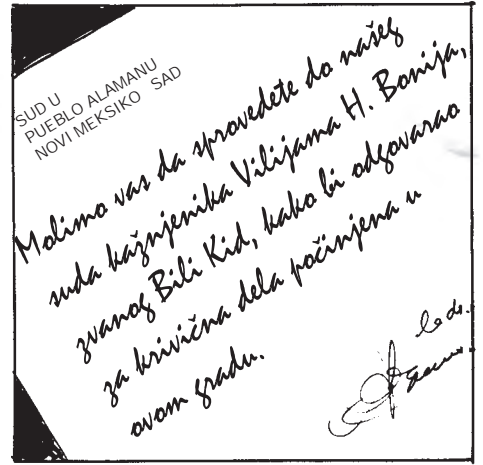 SUD U
PUEBLO ALAMANU
NOVI MEKSIKO SAD
Molimo vas da sprovedete do našeg
suda kažnjenika Vilijama H. Bonija,
zvanog Bili Kid, kako bi odgovarao
za krivična dela počinjena u
ovom gradu.